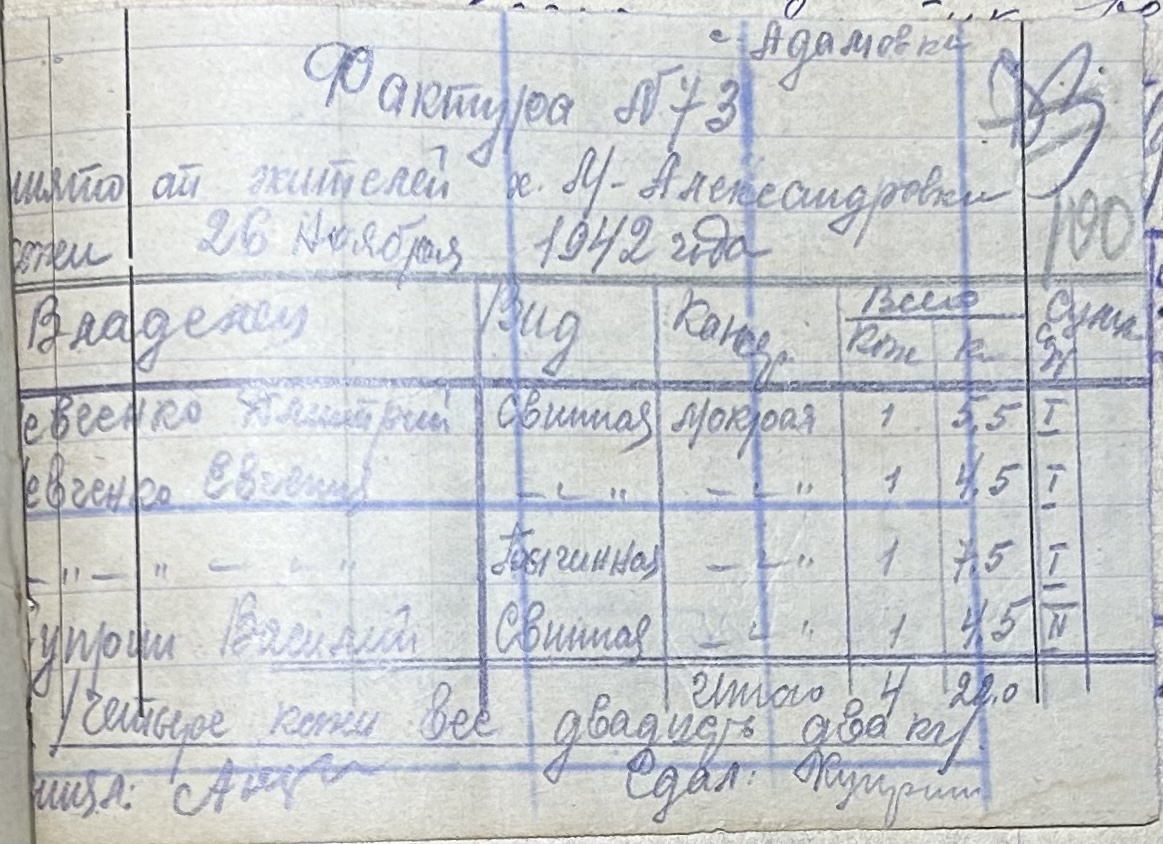 с. Адамовки
Фактура №73
нято от жителей х. М-Александровки
жеи 26 Ноября 1942 года
100
Владелец Вид Консер. Всего Сумм
Кож кг
евченко Дмитрий Свинная мокрая 1 5,5 I
евченко Евгения -"- -"- 1 4,5 I
-"- -"- Бычинная -"- 1 7,5 I
уприн Василий Свинная -"- 1 4,5 II
Итого 4 22,0
/Четыре кожи вес двадцать два кг/
Сдал: Куприн